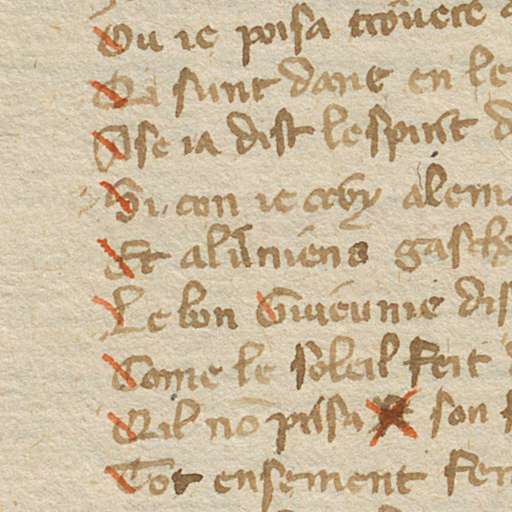 Ou ie poisa trouere
Qi sunt dane en le
Ase ia dist le spirit d
Si con ie croy alem
Et alumena gasch
Le bon Guieume dis
Come le soleil feit
Qil no pasa son
Tot ensement fer